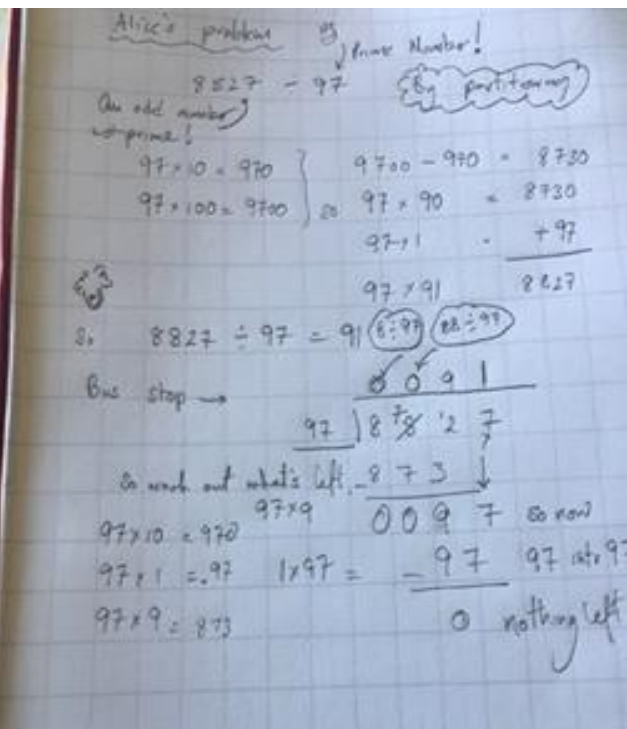 Alice's problem
Prime Number!
8827 ÷ 97
By partitioning
An odd number
not prime!
97 × 10 = 970
97 × 100 = 9700
so
9700 - 970 = 8730
97 × 90 = 8730
97 × 1 = + 97
97 × 91 8827
So 8827 ÷ 97 = 91
8÷97
88÷97
Bus stop →
0 0 9 1
97 ) 8 8 2 7
So work out what's left. - 8 7 3
97×9
0 0 9 7 so now
97×10 = 970
97×1 = 97
1×97 = - 97
97 into 97
97×9 = 873
0 nothing left